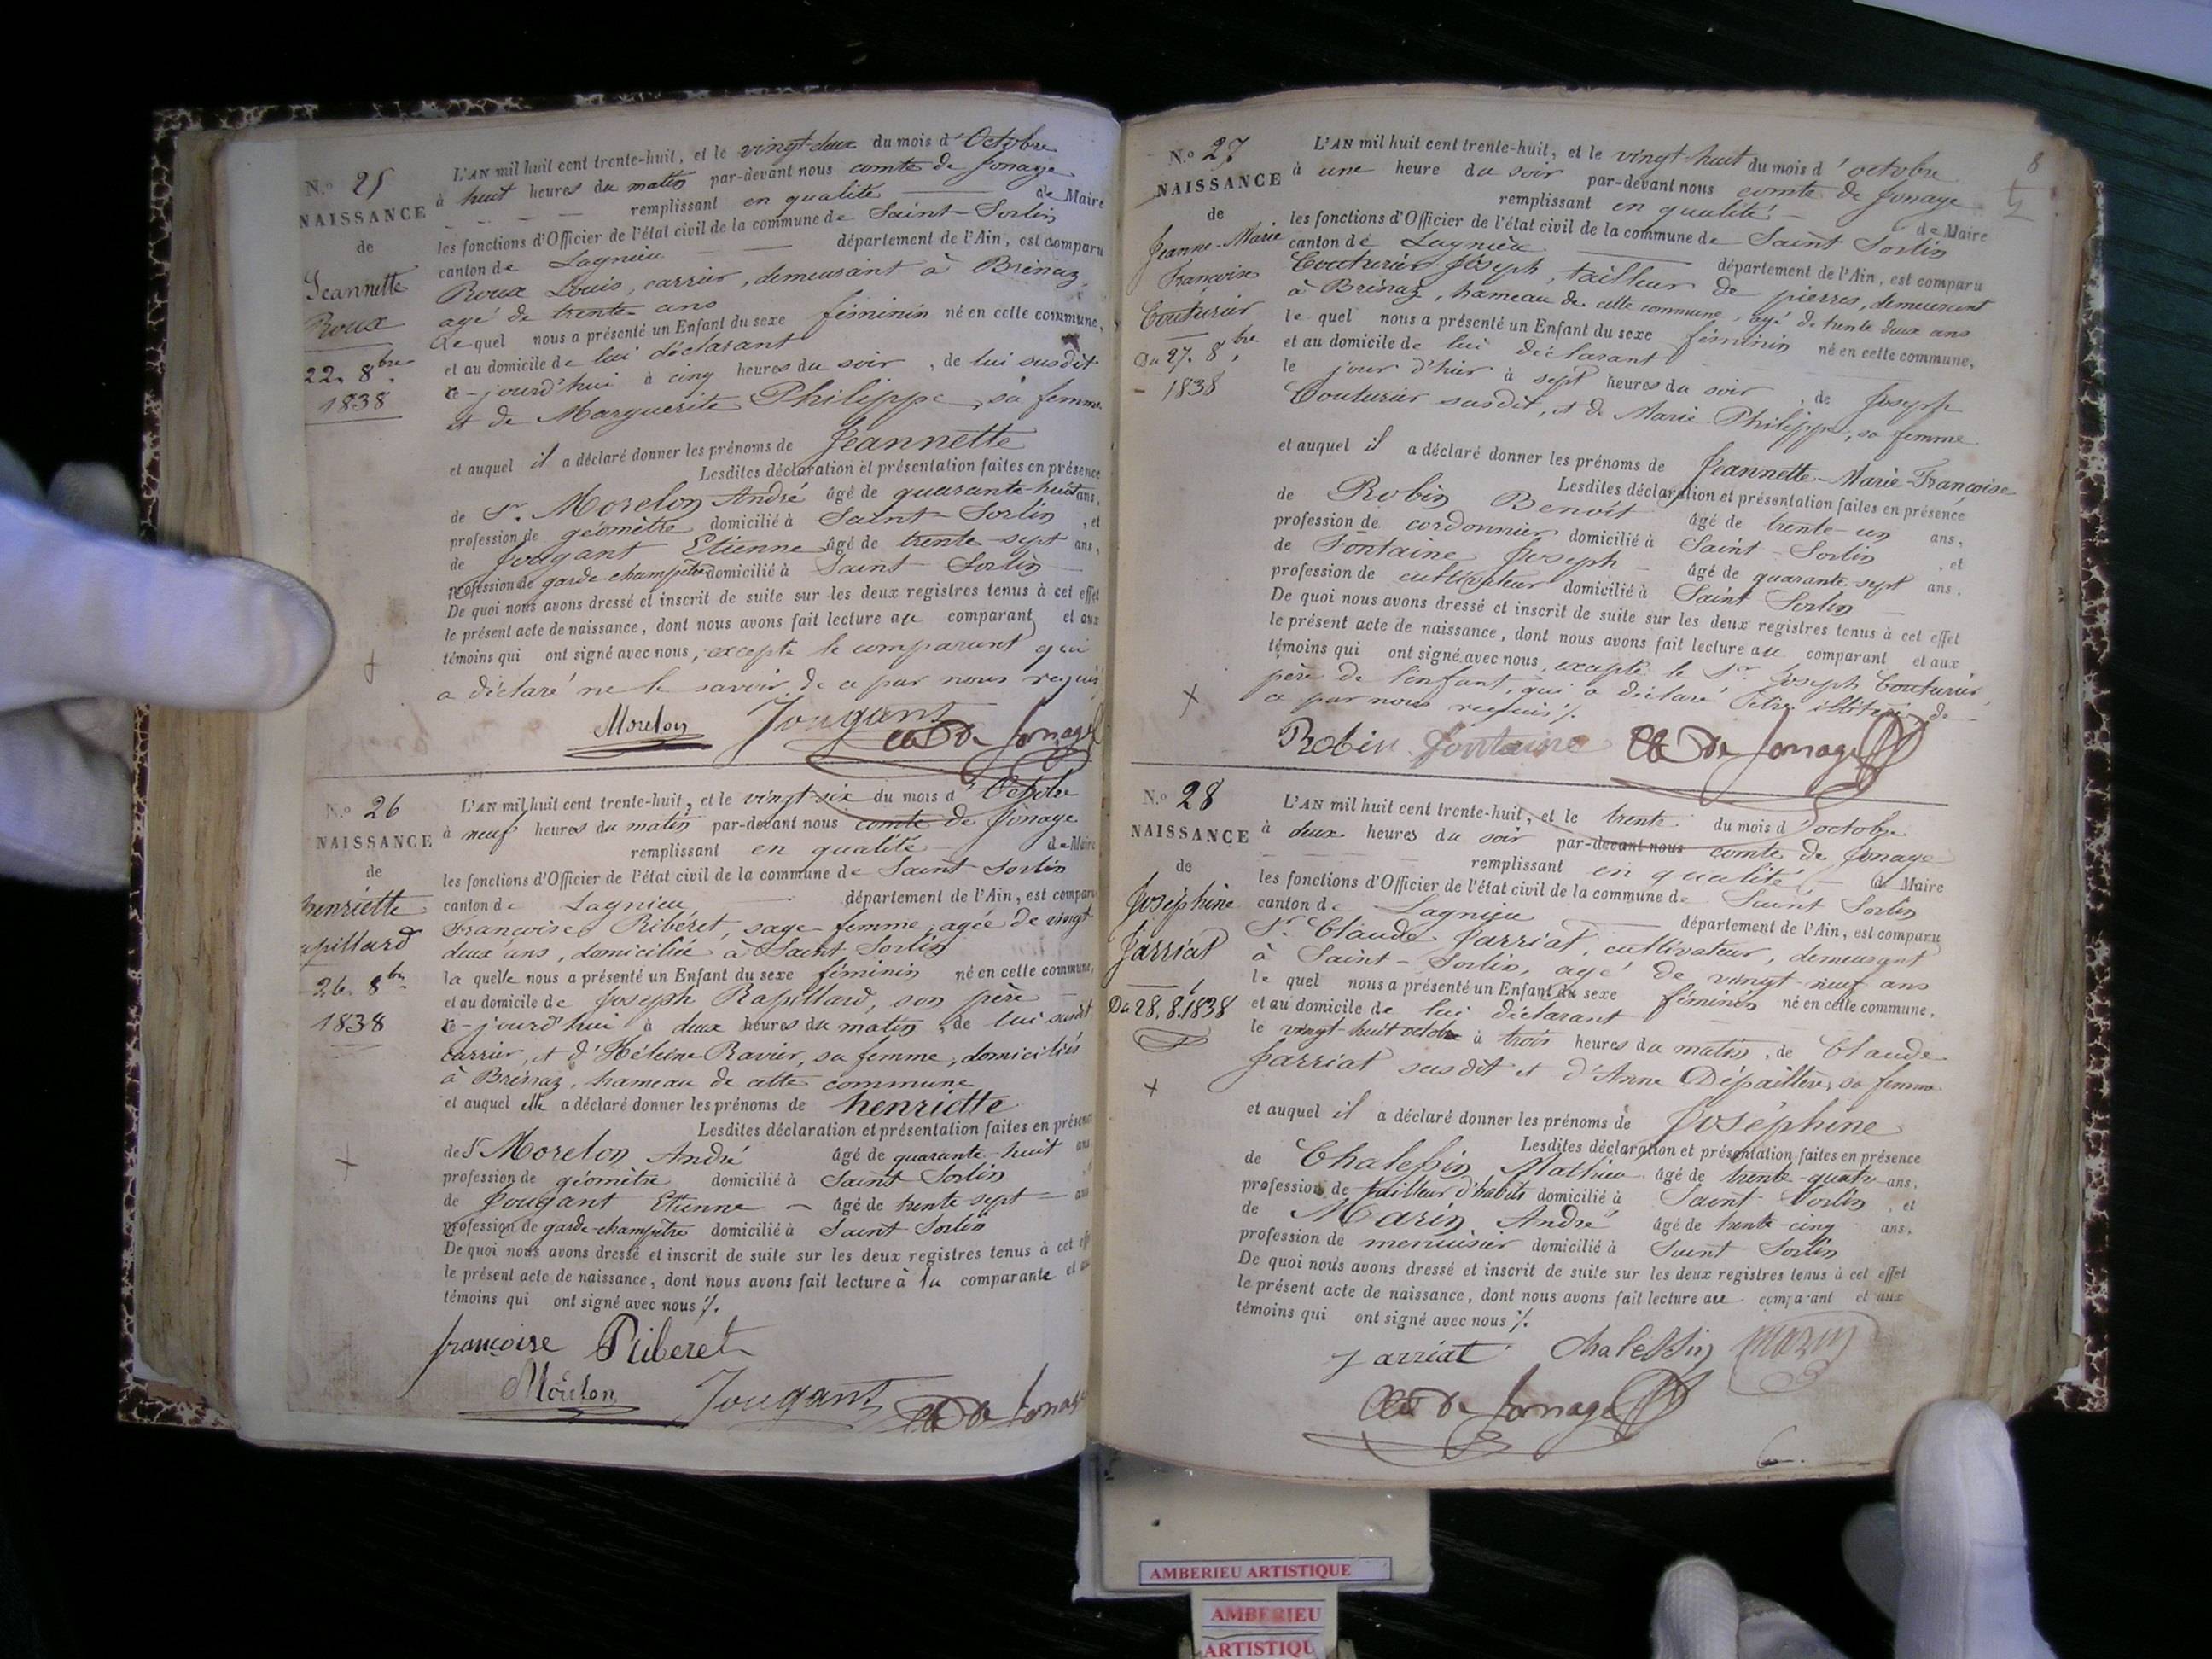 N.o 25
NAISSANCE
de
Jeannette
Roux
22. 8bre
1838
L'AN mil huit cent trente-huit, et le vingt-deux du mois d'Octobre
à huit heures du matin par-devant nous comte de Jonage
remplissant en qualité de Maire
les fonctions d'Officier de l'état civil de la commune de Saint-Sorlin
canton de Lagnieu département de l'Ain, est comparu
Roux Louis, carrier, demeurant à Brénaz,
agé de trente ans
Le quel nous a présenté un Enfant du sexe féminin né en cette commune,
et au domicile de lui déclarant
ce-jourd'hui à cinq heures du soir, de lui susdit
et de Marguerite Philippe, sa femme
et auquel il a déclaré donner les prénoms de Jeannette
Lesdites déclaration et présentation faites en présence
de Sr. Morelon André âgé de quarante-huit ans,
profession de géomètre domicilié à Saint-Sorlin, et
de Jougant Etienne âgé de trente-sept ans,
profession de garde champêtre domicilié à Saint-Sorlin
De quoi nous avons dressé et inscrit de suite sur les deux registres tenus à cet effet
le présent acte de naissance, dont nous avons fait lecture au comparant et aux
témoins qui ont signé avec nous, excepté le comparant qui
a déclaré ne le savoir, de ce par nous requis
Morelon Jougant de Jonage
N.o 26
NAISSANCE
de
henriette
apillard
26. 8bre
1838
L'AN mil huit cent trente-huit, et le vingt-six du mois d'Octobre
à neuf heures du matin par-devant nous comte de Jonage
remplissant en qualité de Maire
les fonctions d'Officier de l'état civil de la commune de Saint Sorlin
canton de Lagnieu département de l'Ain, est comparu
Françoise Ribéret, sage-femme, agée de vingt
deux ans, domiciliée à Saint Sorlin
la quelle nous a présenté un Enfant du sexe féminin né en cette commune,
et au domicile de Joseph Rapillard, son père
ce-jourd'hui à deux heures du matin, de lui susdit
carrier, et d'Hélène Ravier, sa femme, domiciliés
à Brénaz, hameau de cette commune
et auquel elle a déclaré donner les prénoms de henriette
Lesdites déclaration et présentation faites en présence
de Sr Morelon André âgé de quarante-huit ans
profession de géomètre domicilié à Saint Sorlin
de Jougant Etienne âgé de trente sept ans
profession de garde-champêtre domicilié à Saint Sorlin
De quoi nous avons dressé et inscrit de suite sur les deux registres tenus à cet effet
le présent acte de naissance, dont nous avons fait lecture à la comparante et aux
témoins qui ont signé avec nous ./.
françoise Riberet
Morelon Jougant de Jonage
8
N.o 27
NAISSANCE
de
Jeanne-Marie
Françoise
Couturier
Du 27. 8bre
1838
L'AN mil huit cent trente-huit, et le vingt-huit du mois d'octobre
à une heure du soir par-devant nous comte de Jonage
remplissant en qualité de Maire
les fonctions d'Officier de l'état civil de la commune de Saint Sorlin
canton de Lagnieu département de l'Ain, est comparu
Couturier Joseph, tailleur de pierres, demeurant
à Brénaz, hameau de cette commune, agé de trente deux ans
le quel nous a présenté un Enfant du sexe féminin né en cette commune,
et au domicile de lui déclarant
le jour d'hier à sept heures du soir, de Joseph
Couturier susdit, et de Marie Philippe, sa femme
et auquel il a déclaré donner les prénoms de Jeannette-Marie-Françoise
Lesdites déclaration et présentation faites en présence
de Robin Benoît âgé de trente-un ans,
profession de cordonnier domicilié à Saint-Sorlin, et
de Fontaine Joseph âgé de quarante-sept ans.
profession de cultivateur domicilié à Saint Sorlin
De quoi nous avons dressé et inscrit de suite sur les deux registres tenus à cet effet
le présent acte de naissance, dont nous avons fait lecture au comparant et aux
témoins qui ont signé avec nous, excepté le Sr. Joseph Couturier
père de l'enfant, qui a déclaré être illitéré, de
ce par nous requis ./.
Robin fontaine de Jonage
N.o 28
NAISSANCE
de
Joséphine
Jarriat
Du 28. 8. 1838
L'AN mil huit cent trente-huit, et le trente du mois d'octobre
à deux heures du soir par-devant nous comte de Jonage
remplissant en qualité de Maire
les fonctions d'Officier de l'état civil de la commune de Saint Sorlin
canton de Lagnieu département de l'Ain, est comparu
Sr. Claude Jarriat, cultivateur, demeurant
à Saint-Sorlin, agé de vingt-neuf ans
le quel nous a présenté un Enfant du sexe féminin né en cette commune,
et au domicile de lui déclarant
le vingt-huit octobre à trois heures du matin, de Claude
Jarriat susdit et d'Anne Dépaillère, sa femme
et auquel il a déclaré donner les prénoms de Joséphine
Lesdites déclaration et présentation faites en présence
de Chalessin Mathieu âgé de trente-quatre ans,
profession de tailleur d'habits domicilié à Saint Sorlin, et
de Marin André âgé de trente-cinq ans,
profession de menuisier domicilié à Saint Sorlin
De quoi nous avons dressé et inscrit de suite sur les deux registres tenus à cet effet
le présent acte de naissance, dont nous avons fait lecture au comparant et aux
témoins qui ont signé avec nous ./.
Jarriat Chalessin Marin
de Jonage
AMBERIEU ARTISTIQUE
AMBERIEU
ARTISTIQU